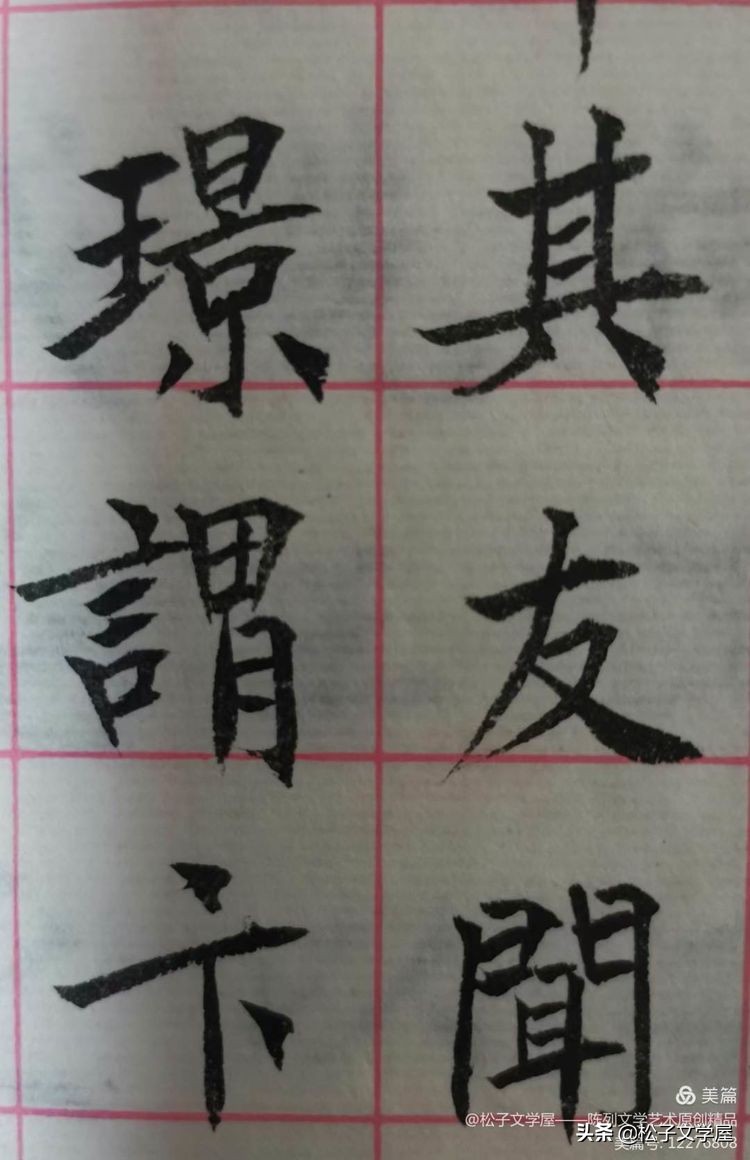 其友聞
璟謂卞
美篇
@松子文学屋——陈列文学艺术原创精品
头条 @松子文学屋
美篇号: 12276808